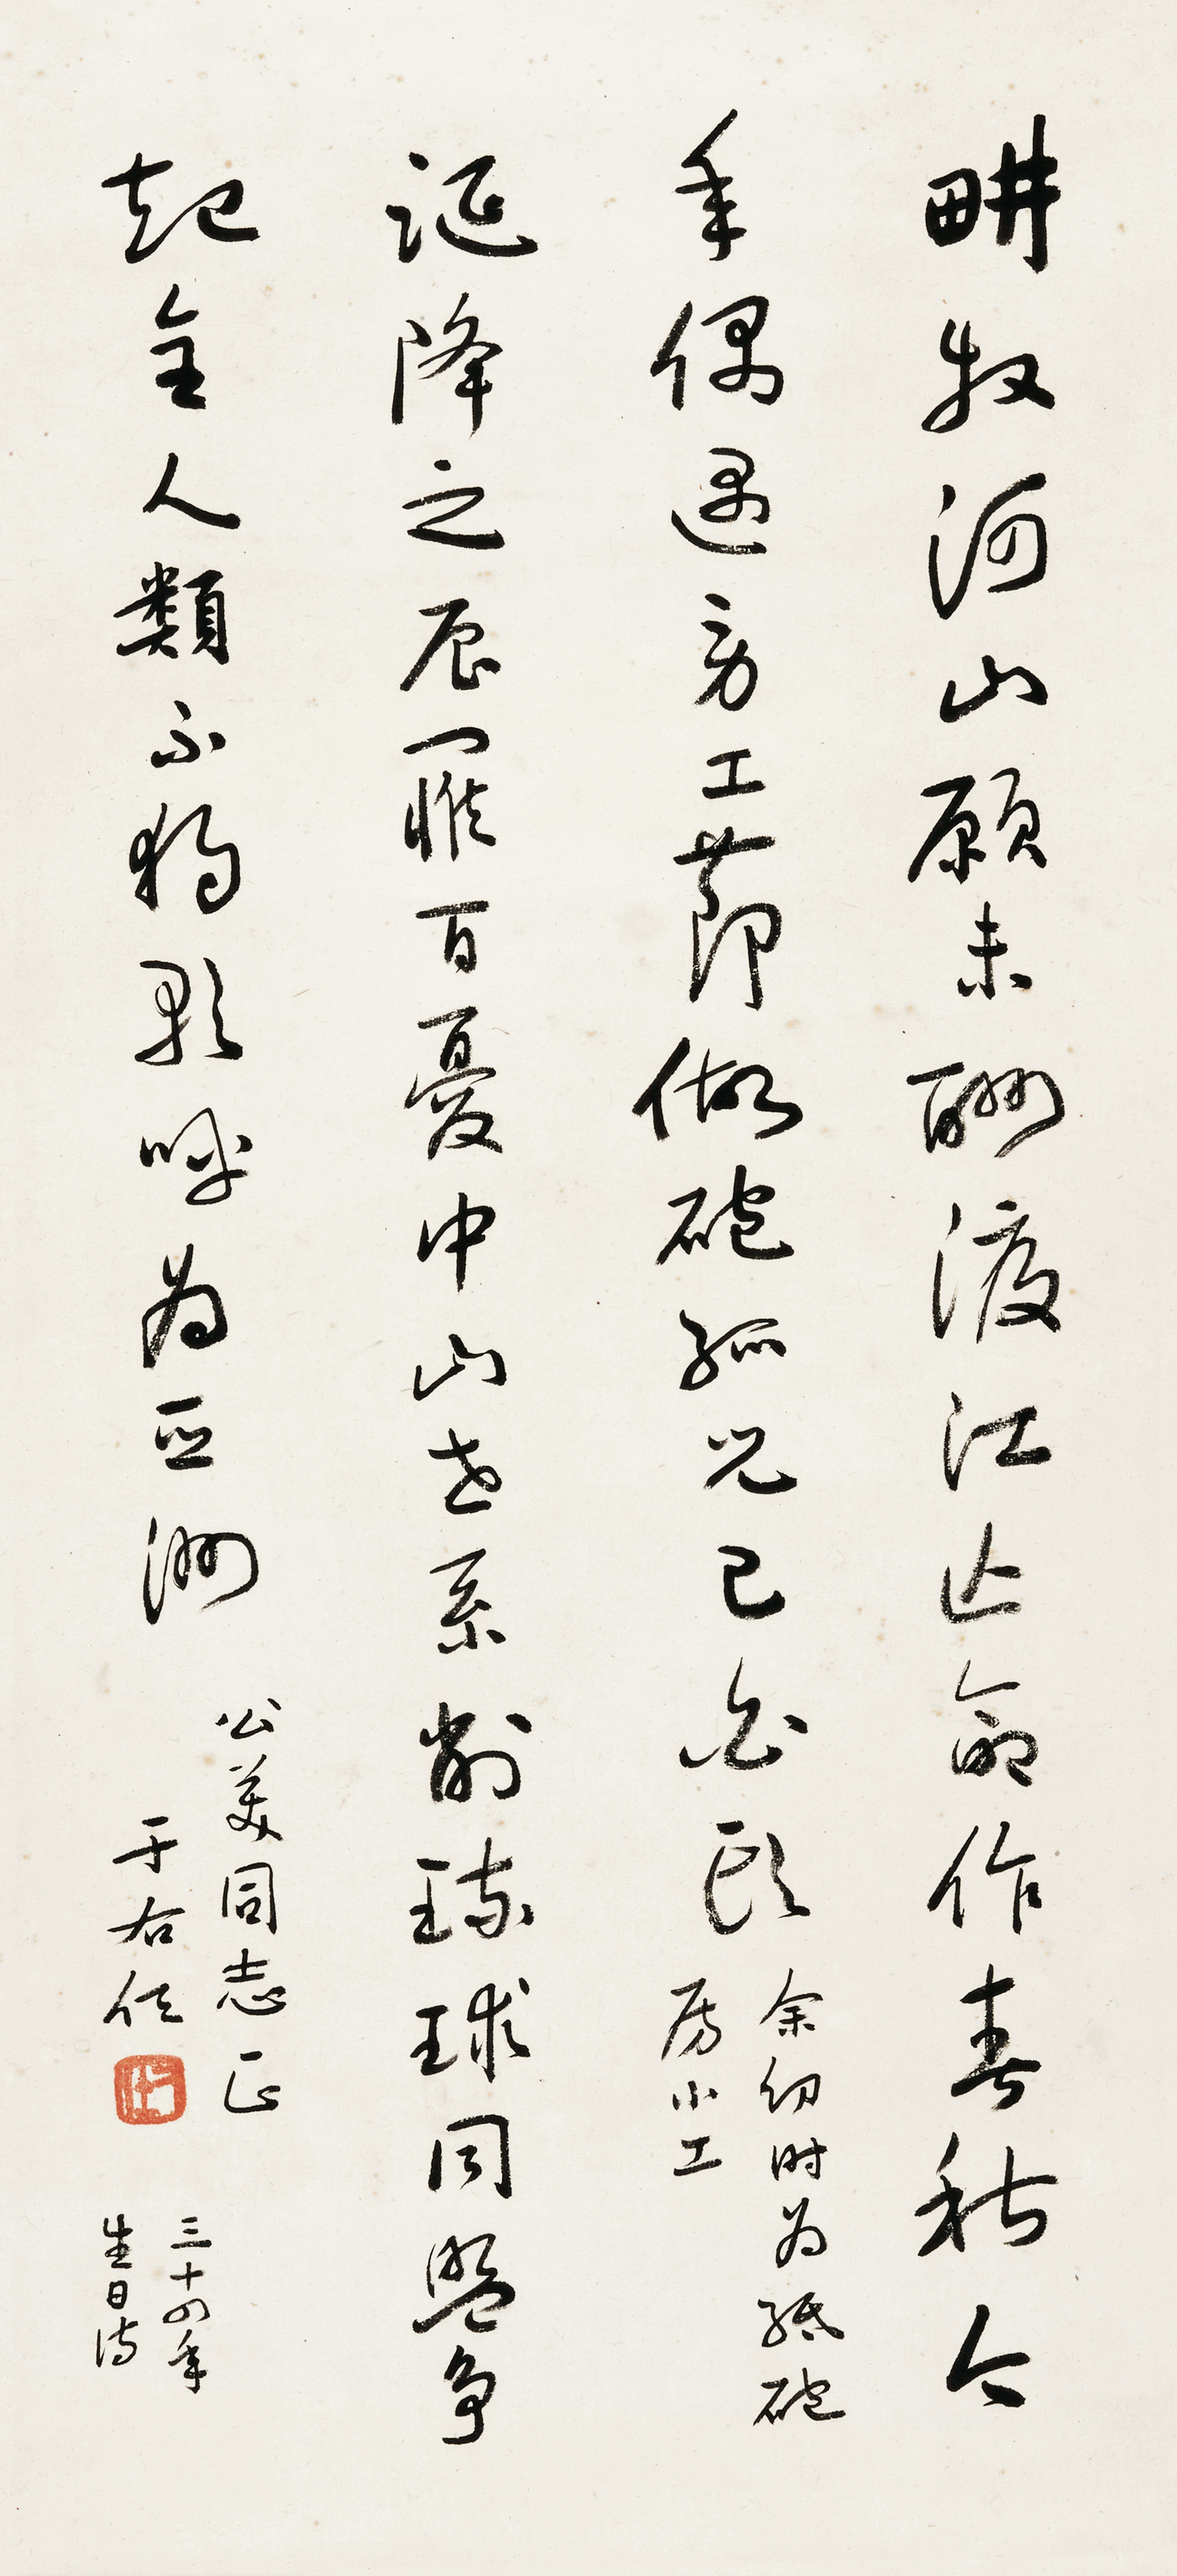 畊牧河山願未酬渡江亡命作春秋今
年偶遇勞工節做砲孤兒已白頭
余幼時為紙砲
房小工
誕降之辰罹百憂中山世系削琉球同盟爭
起全人類不獨歡呼為亞洲
公美同志正
于右任
三十四年
生日詩